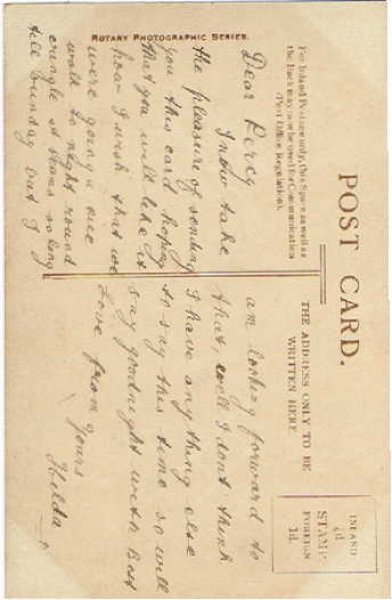 ROTARY PHOTOGRAPHIC SERIES.
POST CARD.
For Inland Postage only, this Space as well as
the Back may now be used for Communication
(Post Office Regulations).
THE ADDRESS ONLY TO BE
WRITTEN HERE
INLAND
½d
STAMP
FOREIGN
1d.
Dear Percy
I now take
the pleasure of sending
you this card hoping
that you will like it
how I wish that we
were going a nice
walk to night round
so long
till Sunday but I
am looking forward to
that, well I dont think
I have anything else
to say this time so will
say goodnight with best
love from
yours
Hilda